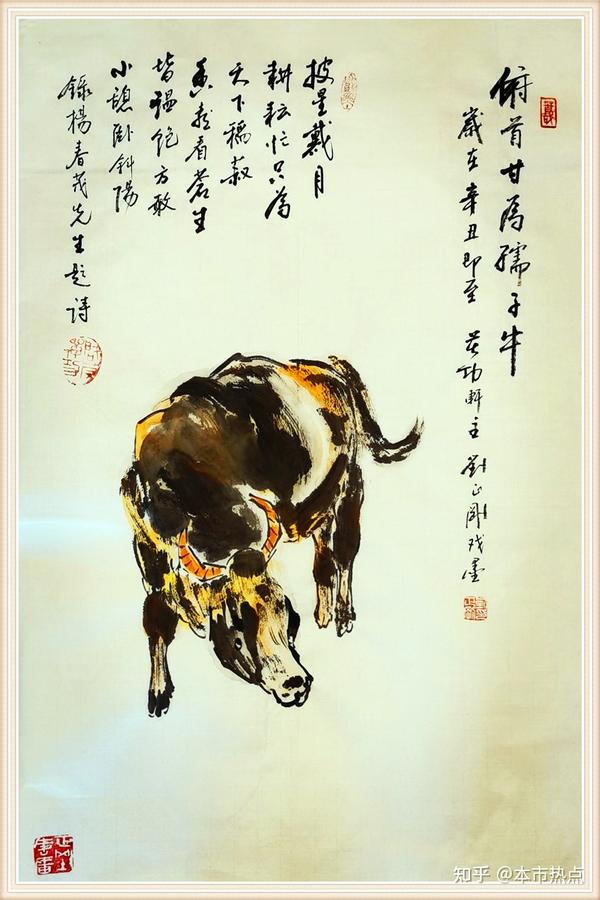 俯首甘為孺子牛
歲在辛丑即至 功軒主 劉正剛戏墨
披星戴月
耕耘忙只為
天下稻菽
香看蒼生
皆温飽方敢
小憩卧斜陽
錄楊春茂先生題詩
知乎 @本市热点